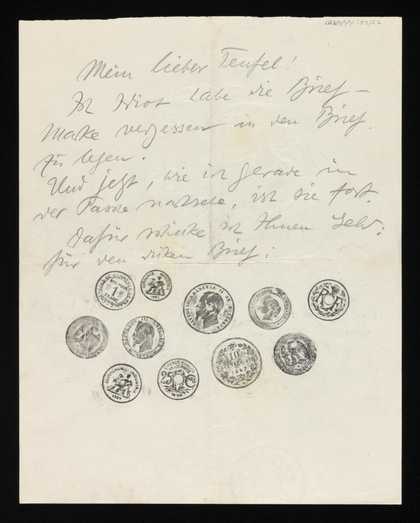 Mein lieber Teufel!
Ich Idiot habe die Brief-
marke vergessen in den Brief
zu legen.
Und jetzt, wie ich gerade in
der Tasche nachsehe, ist sie fort.
Dafür schicke ich Ihnen Geld:
für den dicken Brief:
1
10